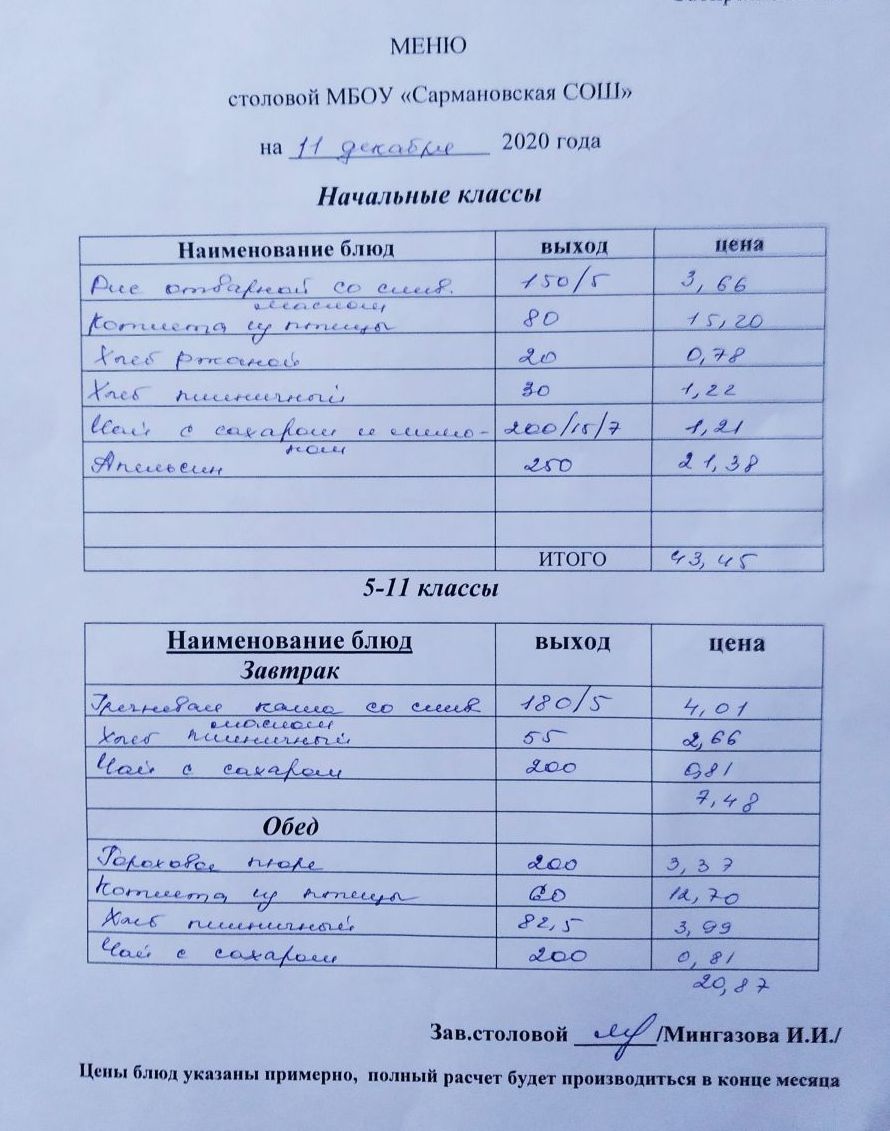 МЕНЮ
столовой МБОУ «Сармановская СОШ»
на 11 декабря 2020 года
Начальные классы
Наименование блюд выход цена
Рис отварной со слив. 150/5 3,66
маслом
Котлета из птицы 80 15,20
Хлеб ржаной 20 0,78
Хлеб пшеничный 30 1,22
Чай с сахаром и лимо- 200/15/7 1,21
ном
Апельсин 250 21,38
ИТОГО 43,45
5-11 классы
Наименование блюд выход цена
Завтрак
Гречневая каша со слив 180/5 4,01
маслом
Хлеб пшеничный 55 2,66
Чай с сахаром 200 0,81
7,48
Обед
Гороховое пюре 200 3,37
Котлета из птицы 60 12,70
Хлеб пшеничный 82,5 3,99
Чай с сахаром 200 0,81
20,87
Зав.столовой /Мингазова И.И./
Цены блюд указаны примерно, полный расчет будет производиться в конце месяца